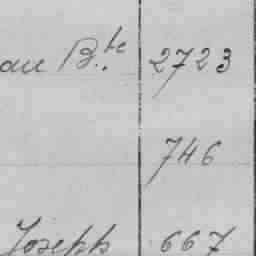 au B.te 2723
746
Joseph 667